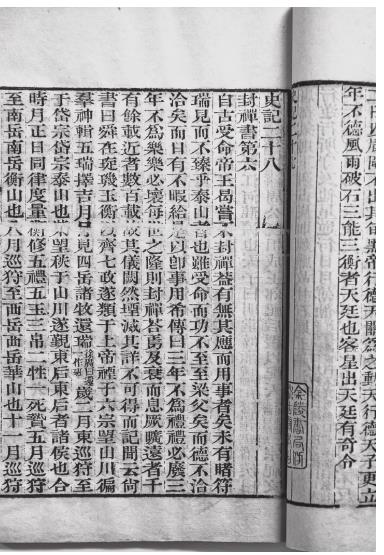 二曰以辰圍不出其旬黑帝行德天關爲之動天行德天子更立
年不德風雨破石三能三衡者天廷也客星出天廷有奇令
金陵書局
史記二十八
封禪書第六
自古受命帝王曷嘗不封禪蓋有無其應而用事者矣未有睹符
瑞見而不臻乎泰山者也雖受命而功不至至梁父矣而德不
洽洽矣而日有不暇給是以卽事用希傳曰三年不爲禮禮必廢三
年不爲樂樂必壞每世之隆則封禪荅焉及衰而息厥曠遠者千
有餘載近者數百載故其儀闕然堙滅其詳不可得而記聞云尚
書曰舜在琁璣玉衡以齊七政遂類于上帝禋于六宗望山川徧
羣神輯五瑞擇吉月日見四岳諸牧還瑞徐廣曰還一作班歲二月東巡狩至
于岱宗岱宗泰山也柴望秩于山川遂覲東后東后者諸侯也合
時月正日同律度量衡修五禮五玉三帛二牲一死贄五月巡狩
至南岳南岳衡山也八月巡狩至西岳西岳華山也十一月巡狩